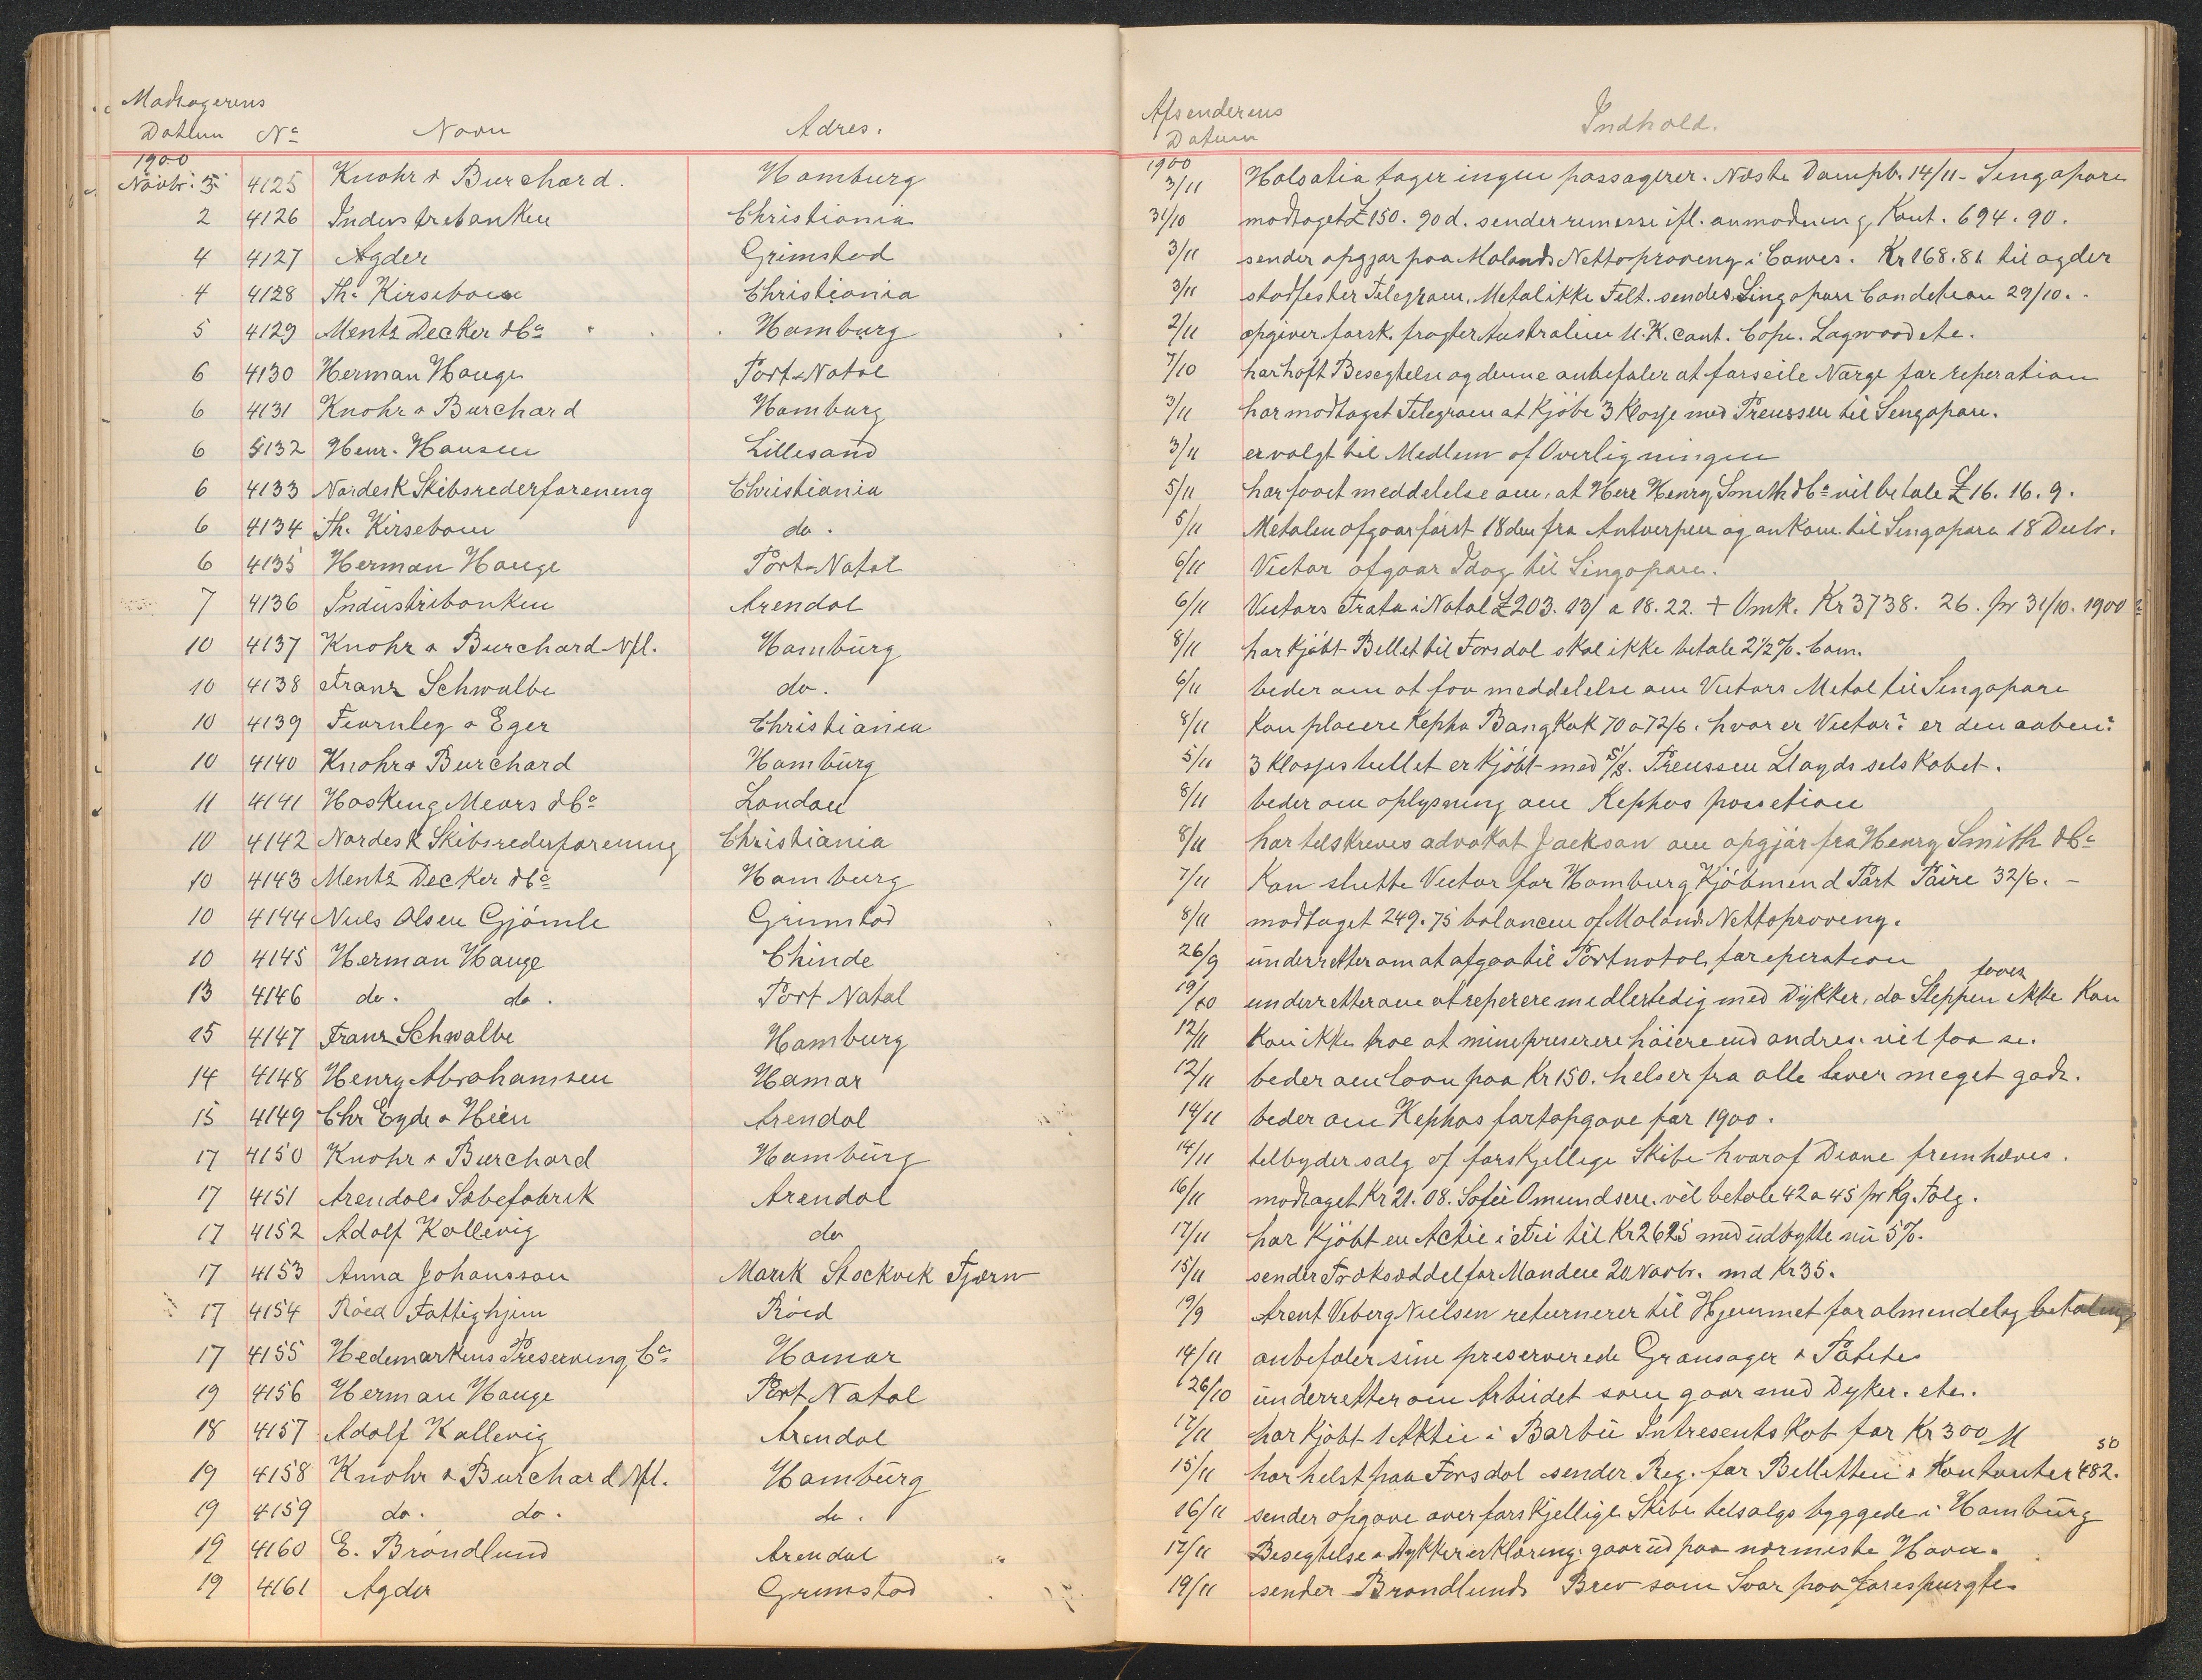 Modtagerens
Datum No Navn Adres.
1900
Novbr. 5 4125 Knohr & Burchard. Hamburg
2 4126 Industribanken Christiania
4 4127 Agder Grimstad
4 4128 Th. Kirsebom Christiania
5 4129 Mentz Decker & Co Hamburg
6 4130 Herman Hauge Port-Natal
6 4131 Knohr & Burchard Hamburg
6 4132 Henr. Hansen Lillesand
6 4133 Nordesk Skibsrederforening Christiania
6 4134 Th. Kirsebom do.
6 4135 Herman Hauge Port-Natal
7 4136 Industribanken Arendal
10 4137 Knohr & Burchard Nfl. Hamburg
10 4138 Franz Schwalbe do.
10 4139 Fearnley & Eger Christiania
10 4140 Knohr & Burchard Hamburg
11 4141 Hosking Mears & Co London
10 4142 Nordesk Skibsrederforening Christiania
10 4143 Mentz Decker & Co Hamburg
10 4144 Niels Olsen Gjömle Grimstad
10 4145 Herman Hauge Chinde
13 4146 do. do. Port Natal
15 4147 Franz Schwalbe Hamburg
14 4148 Henry Abrahamsen Hamar
15 4149 Chr Eyde & Heien Arendal
17 4150 Knohr & Burchard Hamburg
17 4151 Arendals Sæbefabrik Arendal
17 4152 Adolf Kallevig do
17 4153 Anna Johansson Mark Stockvik Tjærn
17 4154 Röed Fattighjem Röed
17 4155 Hedemarkens Preserving Co Hamar
19 4156 Herman Hauge Port Natal
18 4157 Adolf Kallevig Arendal
19 4158 Knohr & Burchard Nfl. Hamburg
19 4159 do. do. do.
19 4160 E. Bröndlund Arendal
19 4161 Agder Grimstad
Afsenderens
Datum Indhold.
1900
3/11 Holsatia tager ingen passagerer. Næste Dampb. 14/11 - Singapore
31/10 modtaget £150. 90 d. sender remesse ifl. anmodning, Kont. 694.90.
3/11 sender opgjør paa Molands Nettoproveny i Cowes. Kr 168.81 til agder
3/11 stadfester Telegram, Metal ikke Felt. sendes Singapore Candetean 29/10.
2/11 opgiver forsk. fragter Australien U.K. cont. Cope. Lagwood etc.
7/10 har haft Besegtelse og denne anbefaler at forseile Norge for reperation
3/11 har modtaget Telegram at Kjöbe 3 Klasse med Preussen til Singapore.
3/11 er valgt til Medlem af Overligningen
5/11 har faaet meddelelse om, at Herr Henry Smith & Co vil betale £16.16.9.
5/11 Metalen afgaar först 18 den fra Antwerpen og ankom. til Singapore 18 Decbr.
6/11 Victor afgaar Idag til Singapore.
6/11 Victors Trata i Natal £203.13/ a 18.22. + Omk. Kr 3738. 26. pr 31/10. 1900
8/11 har Kjöbt Bellet til Forsdal skal ikke betale 2 1/2 %. Com.
6/11 beder om at faa meddelelse om Victors Metal til Singapore
8/11 Kan placere Kepha BangKok 70 a 72/6. hvor er Victor? er den aaben?
5/11 3 Klasses bullet er Kjöbt med S/S. Preussen Lloyds selskabet.
8/11 beder om oplysning om Kephas possetion
8/11 har telskreves advokat Jackson om opgjør fra Henry Smith & Co
7/11 Kan slutte Victor for Hamburg Kjöbmend Port Pairie 32/6. -
8/11 modtaget 249.75 balancen af Molands Nettoproveny.
26/9 underretter om at afgaa til Portnatal for eperation
19/10 underretter om at reperere medlertedig med Dykker, da Sleppen ikke Kan faaes
12/11 Kan ikke troe at mine preserere höiere end andres. vil faa se.
12/11 beder om laan paa Kr 150. helser fra alle lever meget godt.
14/11 beder om Kephas fartopgave for 1900.
14/11 telbyder salg af forskjellige Skibe hvoraf Diane fremhæves.
16/11 modtaget Kr 21.08. Sofie Omundsen. vil betale 42 a 45 pr Kg. Tolg.
17/11 har Kjöbt en Actie i Fri til Kr 2625 med udbytte nu 5 %.
15/11 sender Træksæddel for Manden 20 Novbr. md Kr 35.
19/9 Arent Veberg Nielsen returnerer til Hjemmet for almendelig betaling
14/11 anbefaler sine preserverede Gransager & Patete
26/10 underretter om Arbeidet som gaar med Dyker. etc.
17/11 har Kjöbt 1 Aktie i Barbu Intresentskab for Kr 300
15/11 har helst paa Forsdal sender Reg. for Belletten & Kontanter 482. 50
16/11 sender opgave over forskjellige Skibe telsalgs byggede i Hamburg
17/11 Besegtelse & Dykkererklæring. gaar ud paa nærmeste Havn.
19/11 sender Brøndlunds Brev som Svar paa forespurgte